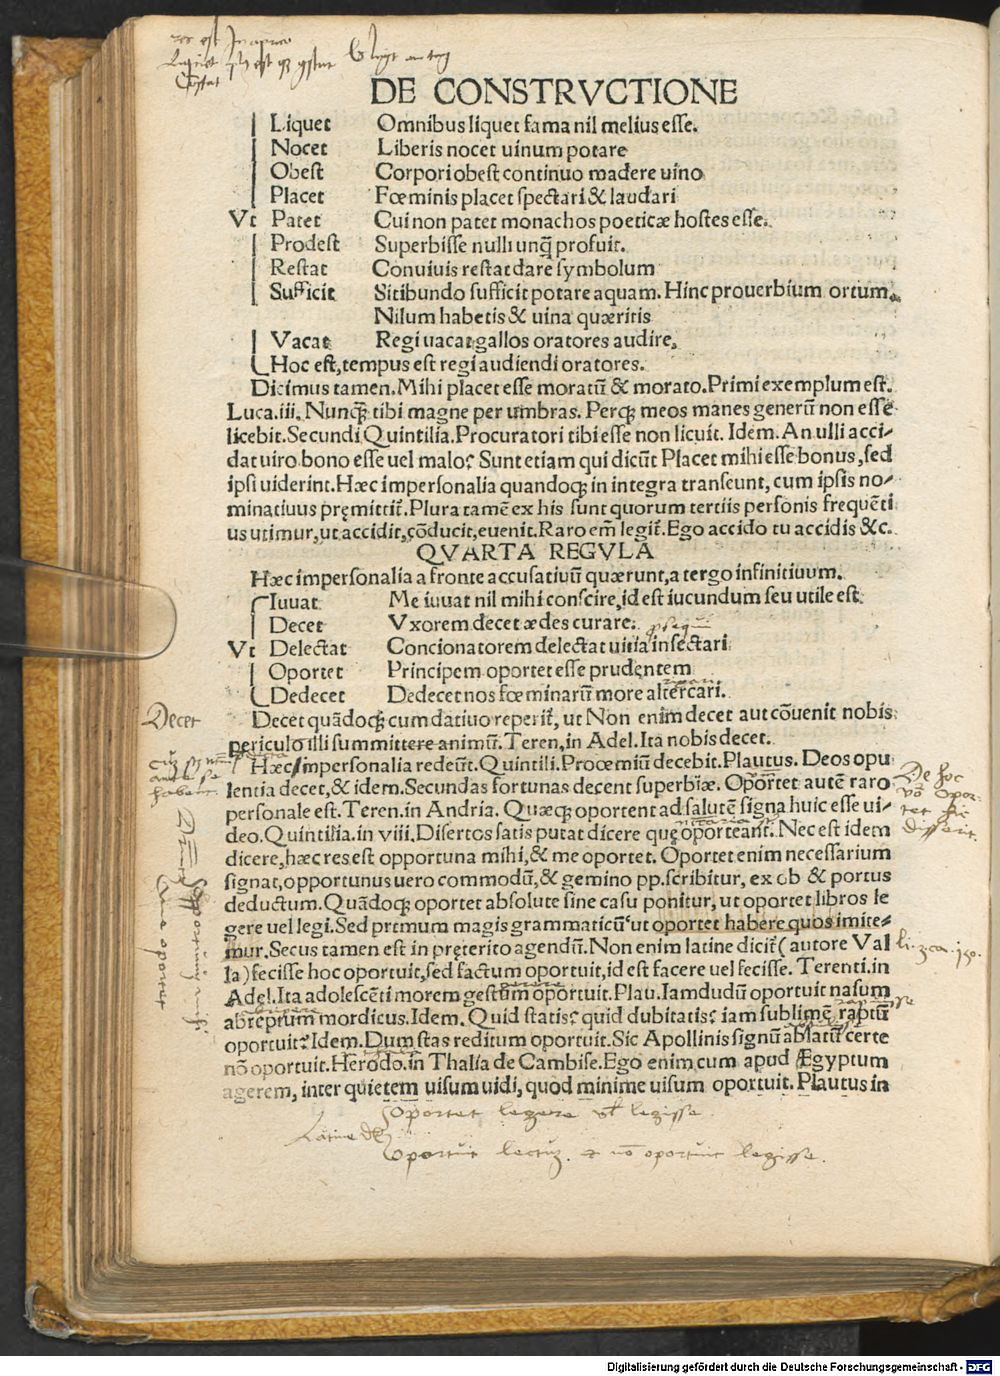 DE CONSTRVCTIONE
Liquet Omnibus liquet fama nil melius esse.
Nocet Liberis nocet uinum potare
Obest Corpori obest continuo madere uino
Placet Fœminis placet spectari & laudari
Vt Patet Cui non patet monachos poeticæ hostes esse.
Prodest Superbisse nulli unq̃ profuit.
Restat Conuiuis restat dare symbolum
Sufficit Sitibundo sufficit potare aquam. Hinc prouerbium ortum.
Nilum habetis & uina quæritis
Vacat Regi uacat gallos oratores audire,
Hoc est, tempus est regi audiendi oratores.
Dicimus tamen. Mihi placet esse moratū & morato. Primi exemplum est.
Luca.iii. Nunq̃ tibi magne per umbras. Perq; meos manes generū non esse
licebit. Secundi Quintilia. Procuratori tibi esse non licuit. Idem. An ulli acci-
dat uiro bono esse uel malo? Sunt etiam qui dicūt Placet mihi esse bonus, sed
ipsi uiderint. Hæc impersonalia quandoq; in integra transeunt, cum ipsis no-
minatiuus pręmittit̃. Plura tamē ex his sunt quorum tertiis personis frequēti
us utimur, ut accidit, cōducit, euenit. Raro em̃ legit̃. Ego accido tu accidis &c.
QVARTA REGVLA
Hæc impersonalia a fronte accusatiuū quærunt, a tergo infinitiuum.
Iuuat Me iuuat nil mihi conscire, id est iucundum seu utile est
Decet Vxorem decet ædes curare.
Vt Delectat Concionatorem delectat uitia insectari
Oportet Principem oportet esse prudentem
Dedecet Dedecet nos fœminarū more altercari.
Decet
Decet quādoq; cum datiuo reperit̃, ut Non enim decet aut cōuenit nobis
periculo illi summittere animū. Teren, in Adel. Ita nobis decet.
Hæc impersonalia redeūt. Quintili. Prœmium decebit. Plautus. Deos opu
lentia decet, & idem. Secundas fortunas decent superbiæ. Oportet autē raro
personale est. Teren. in Andria. Quæq; oportent ad salutē signa huic esse ui-
deo. Quintilia. in viii. Disertos satis putat dicere quę oporteant. Nec est idem
dicere, hæc res est opportuna mihi, & me oportet. Oportet enim necessarium
signat, opportunus uero commodū, & gemino pp. scribitur, ex ob & portus
deductum. Quādoq; oportet absolute sine casu ponitur, ut oportet libros le
gere uel legi. Sed primum magis grammaticū ut oportet habere quos imite-
mur. Secus tamen est in pręterito agendū. Non enim latine dicit̃ (autore Val
la) fecisse hoc oportuit, sed factum oportuit, id est facere uel fecisse. Terenti. in
Adel. Ita adolescēti morem gestum oportuit. Plau. Iamdudū oportuit nasum
abreptum mordicus. Idem. Quid statis? quid dubitatis? iam sublimē raptū
oportuit? Idem. Dum stas reditum oportuit. Sic Apollinis signū ablatū certe
nō oportuit. Herodo. in Thalia de Cambise. Ego enim cum apud Ægyptum
agerem, inter quietem uisum uidi, quod minime uisum oportuit. Plautus in
Oportet legere vel legisse
Oportuit lectum. et nō oportuit legisse.
Digitalisierung gefördert durch die Deutsche Forschungsgemeinschaft - DFG